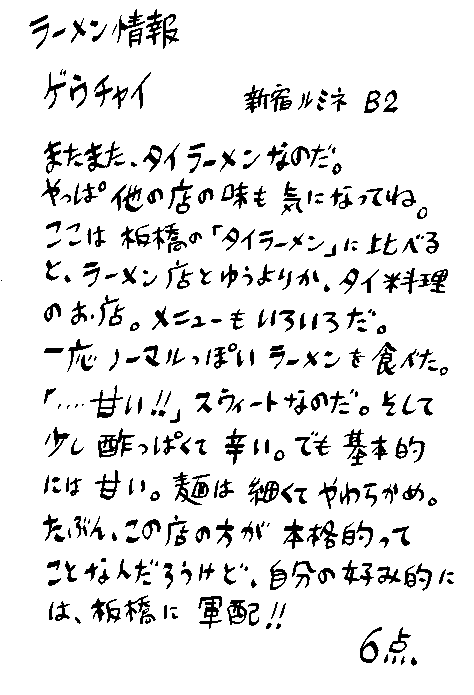 ラーメン情報
ゲウチャイ 新宿ルミネ B2
またまた、タイラーメンなのだ。
やっぱ他の店の味も気になってね。
ここは板橋の「タイラーメン」に比べる
と、ラーメン店とゆうよりか、タイ料理
のお店。メニューもいろいろだ。
一応ノーマルっぽいラーメンを食べた。
「‥‥甘い!!」スウィートなのだ。そして
少し酢っぱくて辛い。でも基本的
には甘い。麺は細くてやわらかめ。
たぶん、この店の方が本格的って
ことなんだろうけど、自分の好み的に
は、板橋に軍配!!
6点.